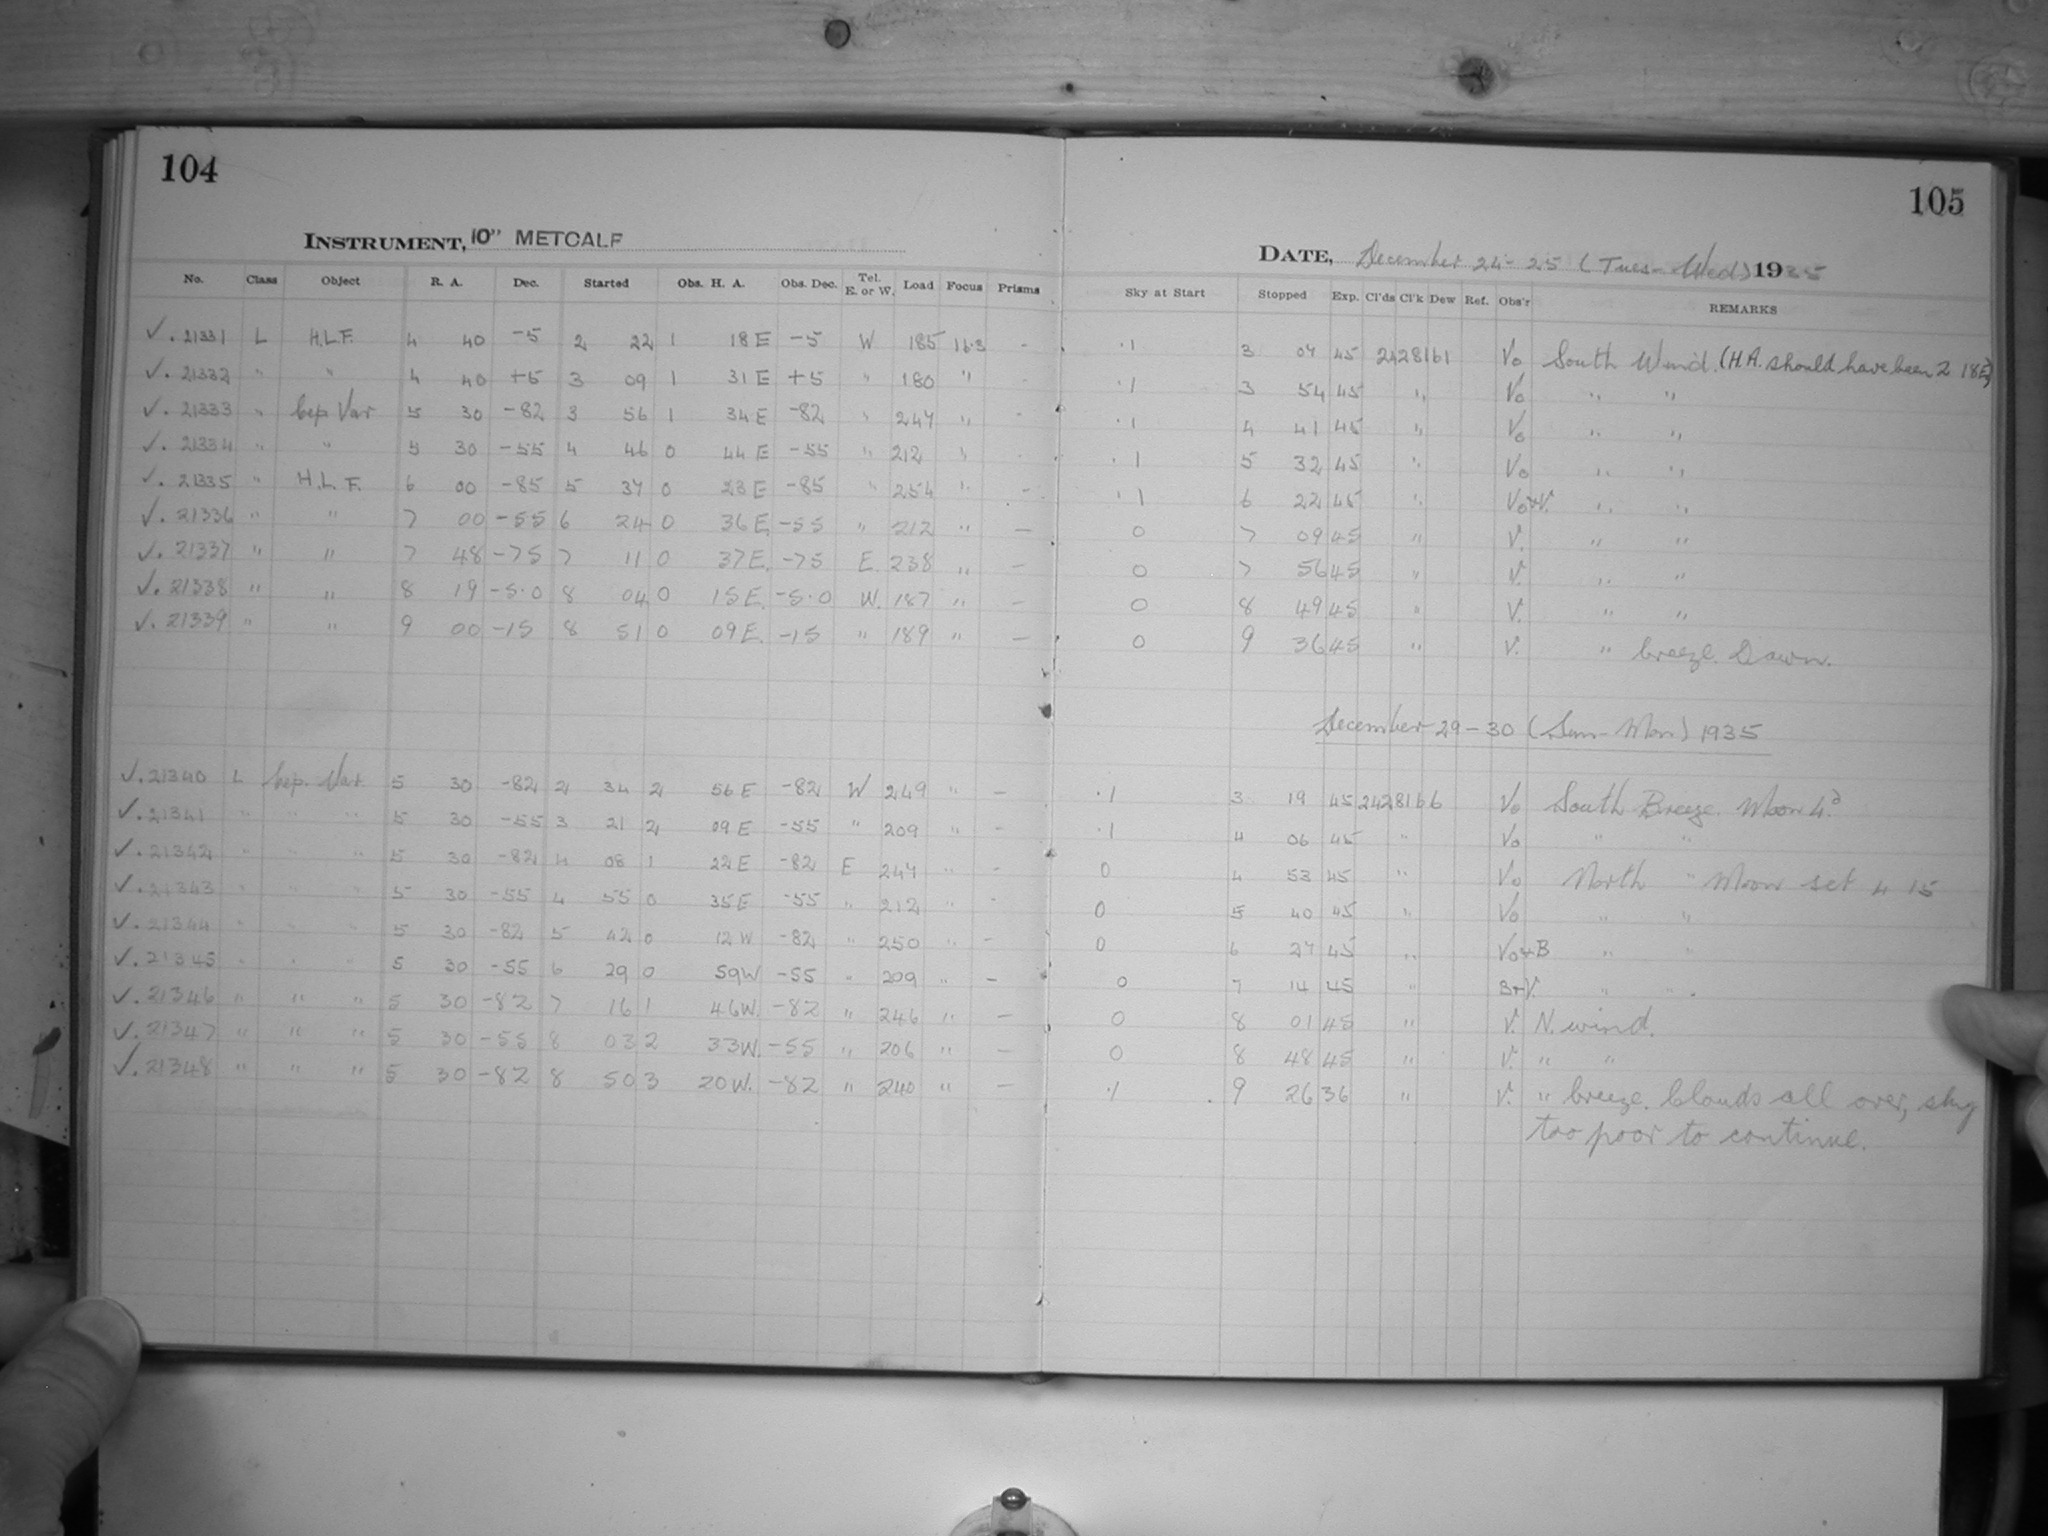 104
105
INSTRUMENT, 10" METCALF
DATE, December 24-25 (Tues-Wed) 1935
No. Class Object R. A. Dec. Started Obs. H. A. Obs. Dec. Tel. E. or W. Load Focus Prisms Sky at Start Stopped Exp. Cl'ds Cl'k Dew Ref. Obs'r REMARKS
✓. 21331 L H.L.F. 4 40 -5 2 22 1 18 E -5 W 185 16.3 - .1 3 07 45 2428161 Vo South Wind. (H.A. should have been 2 18E)
✓. 21332 " " 4 40 +5 3 09 1 31 E +5 " 180 " - .1 3 54 45 " Vo " "
✓. 21333 " Cep Var 5 30 -82 3 56 1 34 E -82 " 247 " - .1 4 41 45 " Vo " "
✓. 21334 " " 5 30 -55 4 46 0 44 E -55 " 212 " - .1 5 32 45 " Vo " "
✓. 21335 " H.L.F. 6 00 -85 5 37 0 23 E -85 " 254 " - .1 6 22 45 " Vo+V. " "
✓. 21336 " " 7 00 -55 6 24 0 36 E -55 " 212 " - 0 7 09 45 " V. " "
✓. 21337 " " 7 48 -75 7 11 0 37 E. -75 E. 238 " - 0 7 56 45 " V. " "
✓. 21338 " " 8 19 -5.0 8 04 0 15 E. -5.0 W. 187 " - 0 8 49 45 " V. " "
✓. 21339 " " 9 00 -15 8 51 0 09 E. -15 " 189 " - 0 9 36 45 " V. " breeze. Dawn.
December 29-30 (Sun-Mon) 1935
✓. 21340 L Cep. Var. 5 30 -82 2 34 2 56 E -82 W 249 " - .1 3 19 45 2428166 Vo South Breeze. Moon 4d.
✓. 21341 " " " 5 30 -55 3 21 2 09 E -55 " 209 " - .1 4 06 45 " Vo " "
✓. 21342 " " " 5 30 -82 4 08 1 22 E -82 E 247 " - 0 4 53 45 " Vo North " Moon set 4 15
✓. 21343 " " " 5 30 -55 4 55 0 35 E -55 " 212 " - 0 5 40 45 " Vo " "
✓. 21344 " " " 5 30 -82 5 42 0 12 W -82 " 250 " - 0 6 27 45 " Vo+B " "
✓. 21345 " " " 5 30 -55 6 29 0 59 W -55 " 209 " - 0 7 14 45 " B+V. " "
✓. 21346 " " " 5 30 -82 7 16 1 46 W. -82 " 246 " - 0 8 01 45 " V. N. wind.
✓. 21347 " " " 5 30 -55 8 03 2 33 W. -55 " 206 " - 0 8 48 45 " V. " "
✓. 21348 " " " 5 30 -82 8 50 3 20 W. -82 " 240 " - .1 9 26 36 " V. " breeze. Clouds all over, sky
too poor to continue.